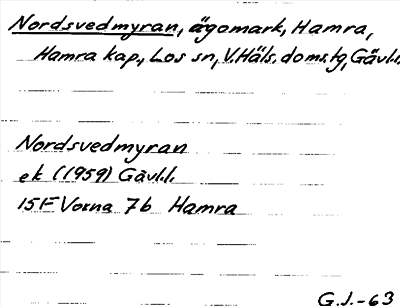 Nordsvedmyran, ägomark, Hamra,
Hamra kap., Los sn, V.Häls. doms.tg, Gävl.l.
Nordsvedmyran
ek (1959) Gävl.l.
15F Voxna 7b Hamra
G.J.-63